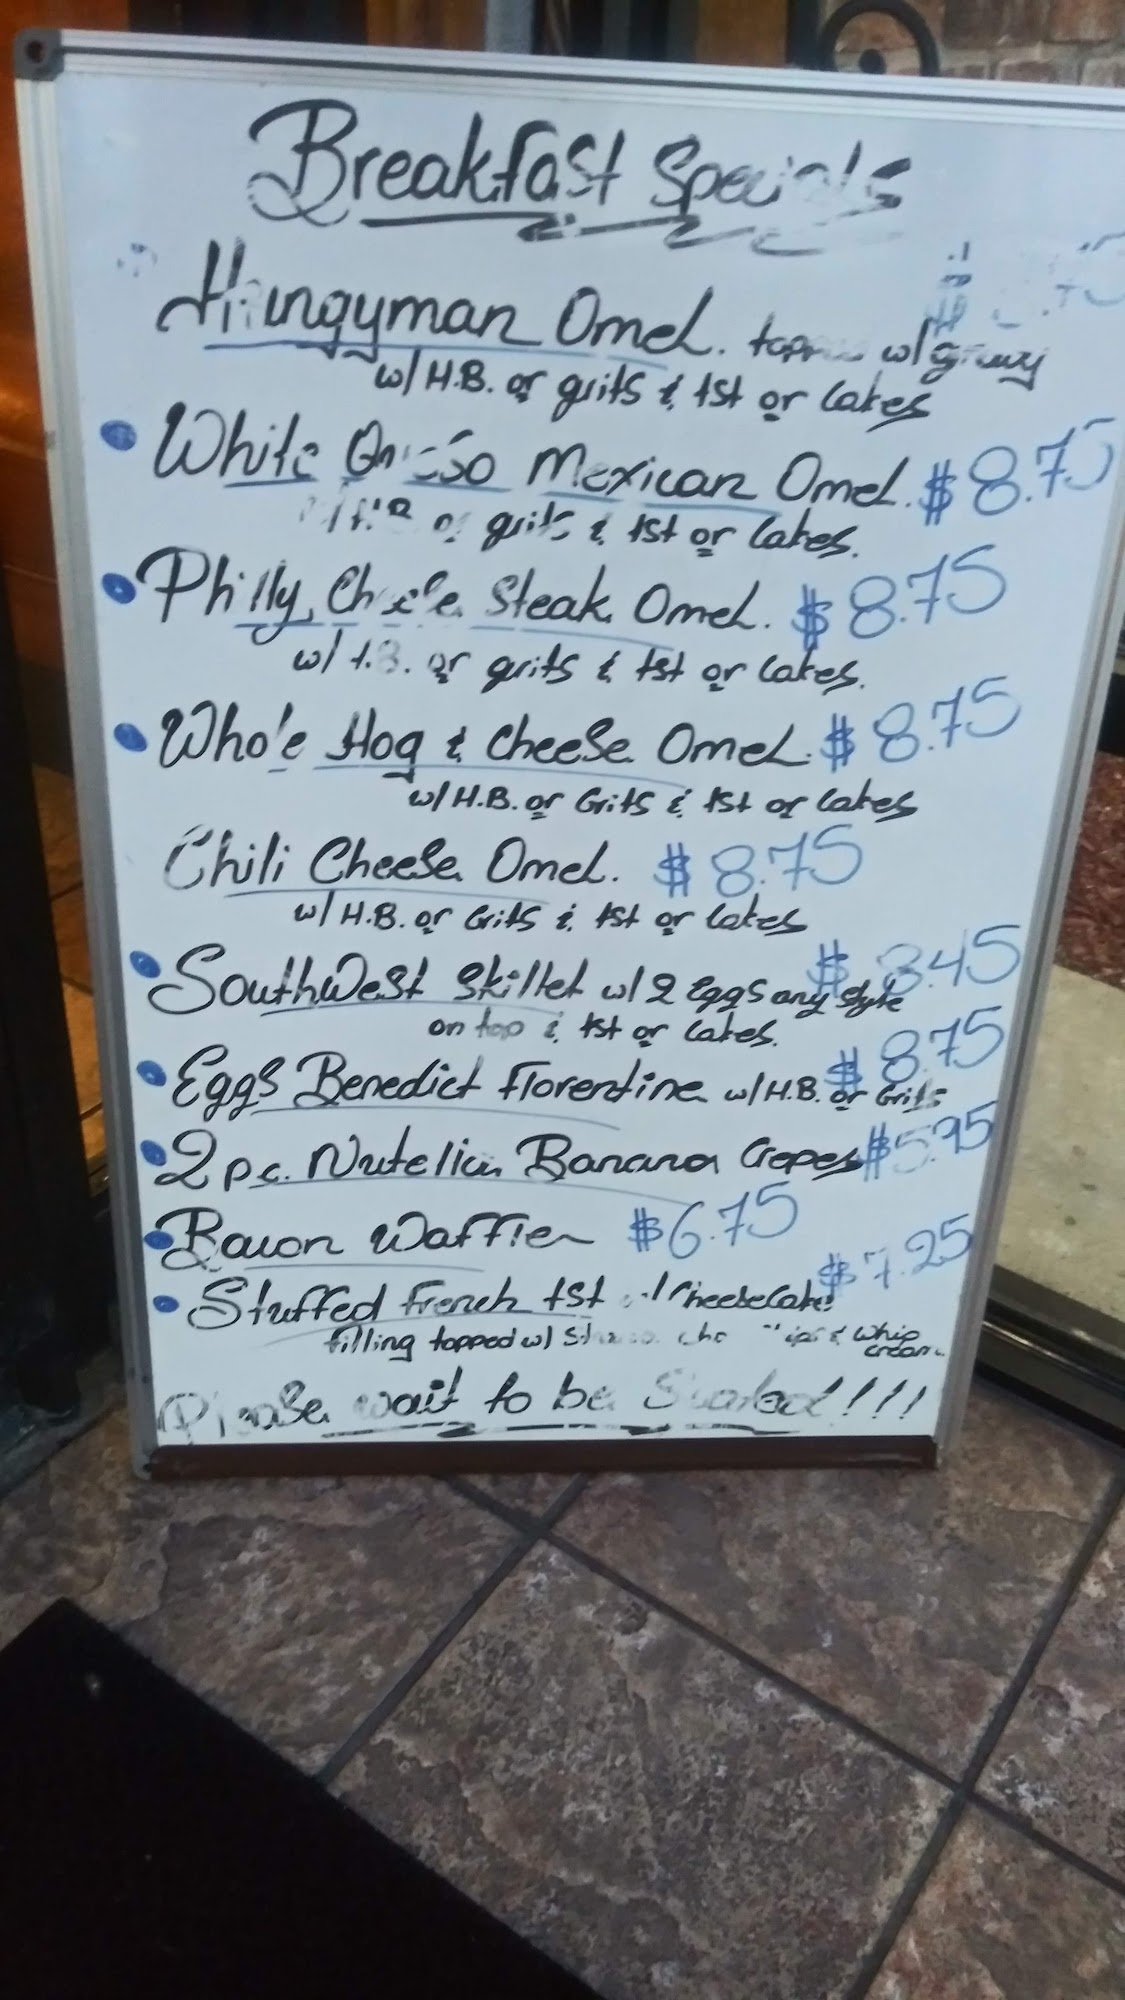 Breakfast Specials
Hungyman Omel. topped w/ gravy
w/ H.B. or grits & tst or Cakes
White Queso Mexican Omel. $8.75
w/ H.B. or grits & tst or Cakes.
Philly Cheese Steak Omel. $8.75
w/ H.B. or grits & tst or Cakes.
Whole Hog & Cheese Omel. $8.75
w/ H.B. or Grits & tst or Cakes
Chili Cheese Omel. $8.75
w/ H.B. or Grits & tst or Cakes
Southwest Skillet w/ 2 Eggs any style $8.45
on top & tst or Cakes.
Eggs Benedict Florentine w/ H.B. or Grits $8.75
2 pc. Nutella Banana Crepes $5.95
Bacon Waffle $6.75
Stuffed French tst w/ Cheesecake $7.25
filling topped w/ & Whip cream
Please wait to be Seated!!!!